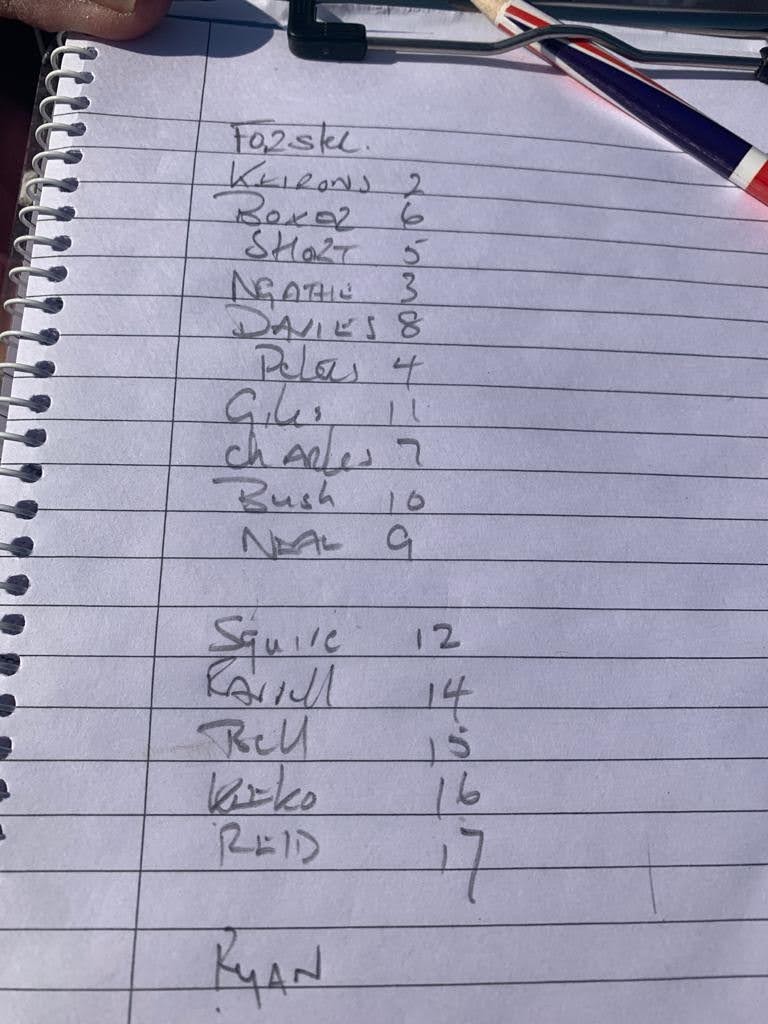 Forster.
KEIRONS 2
BOXER 6
SHORT 5
NGATHIE 3
DAVIES 8
Peters 4
Giles 11
chArles 7
Bush 10
NEAL 9
Squire 12
14
Bell 15
16
REID 17
RYAN